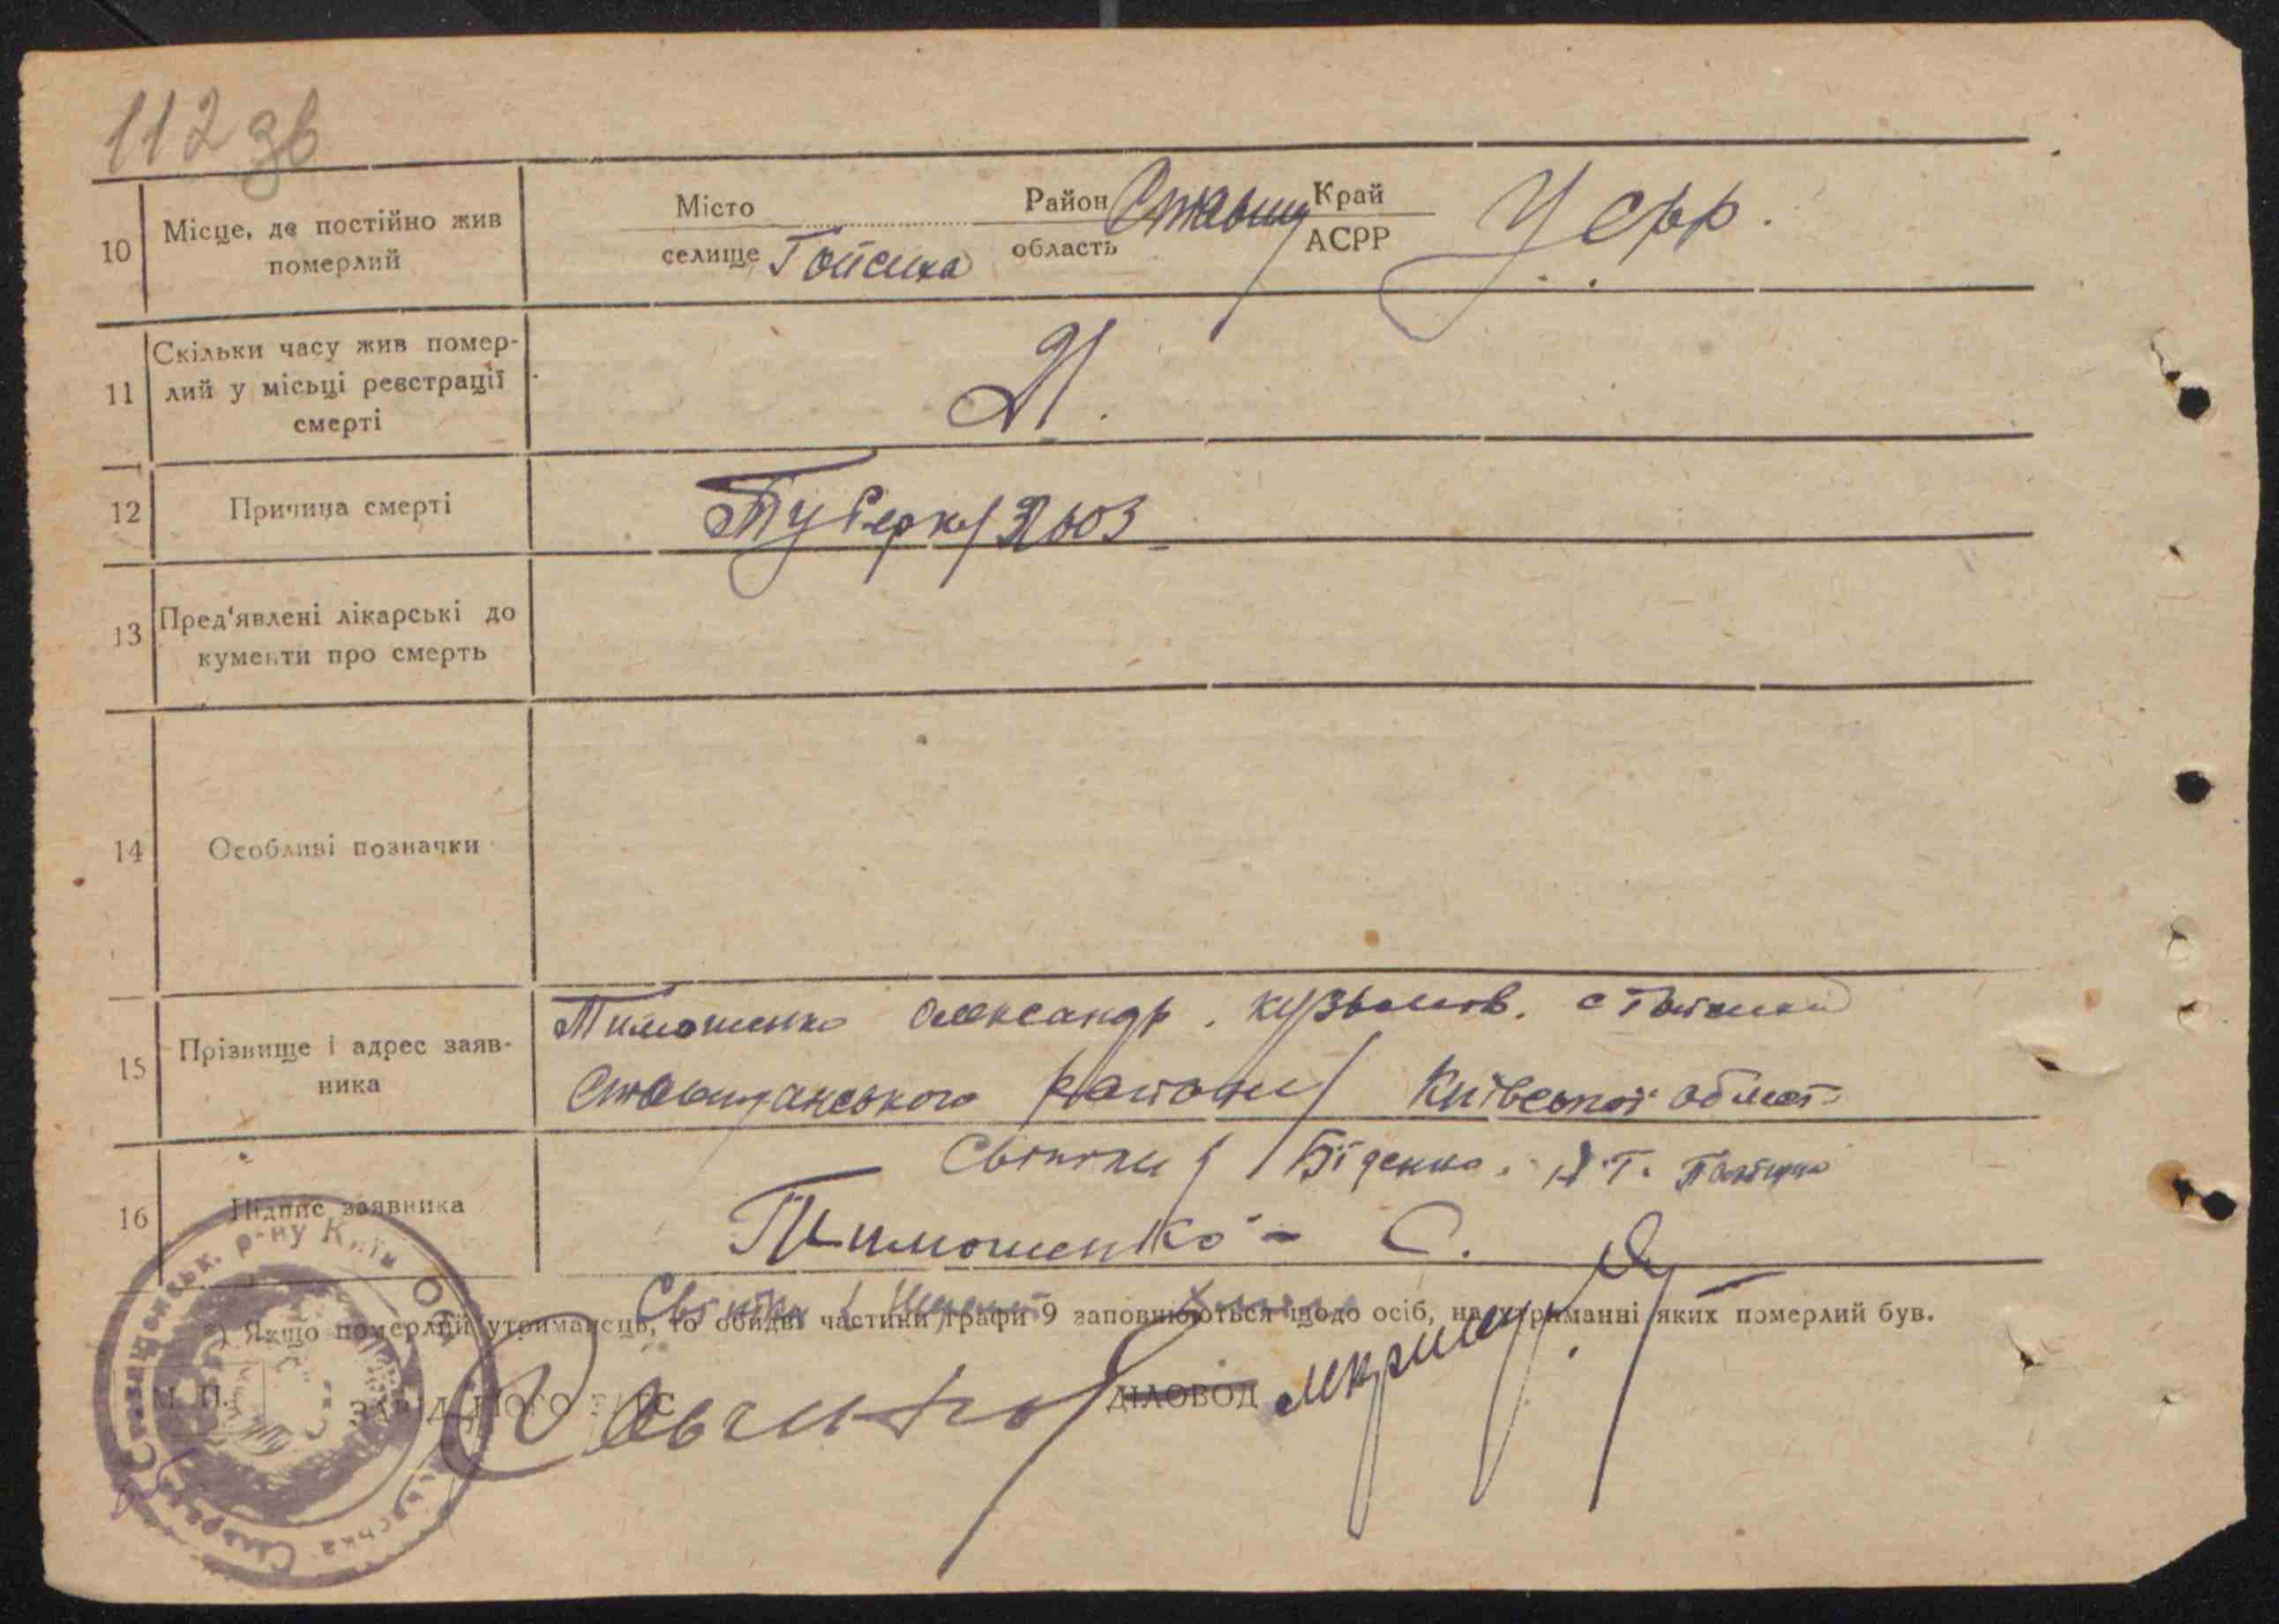 112 зв
10 Місце, де постійно жив померлий
Місто
селище Гойсиха
Район
область
Ставищ
Край
АСРР
УСРР.
11 Скільки часу жив помер-
лий у місьці реєстрації
смерті
12 Причина смерті
Туберкульоз
13 Пред'явлені лікарські до
кументи про смерть
14 Особливі позначки
15 Прізвище і адрес заяв-
ника
Тимошенко Олександр. Кузьмов. с Гойсиха
Ставищанського району Київської област
16 Підпис заявника
Свідки
Тимошенко - С.
*) Якщо померлий утриманець, то обидві частини графи 9 заповнюються щодо осіб, на утриманні яких померлий був.
М. П.
ДІЛОВОД
Ставищенськ. р-ну Київ Обл